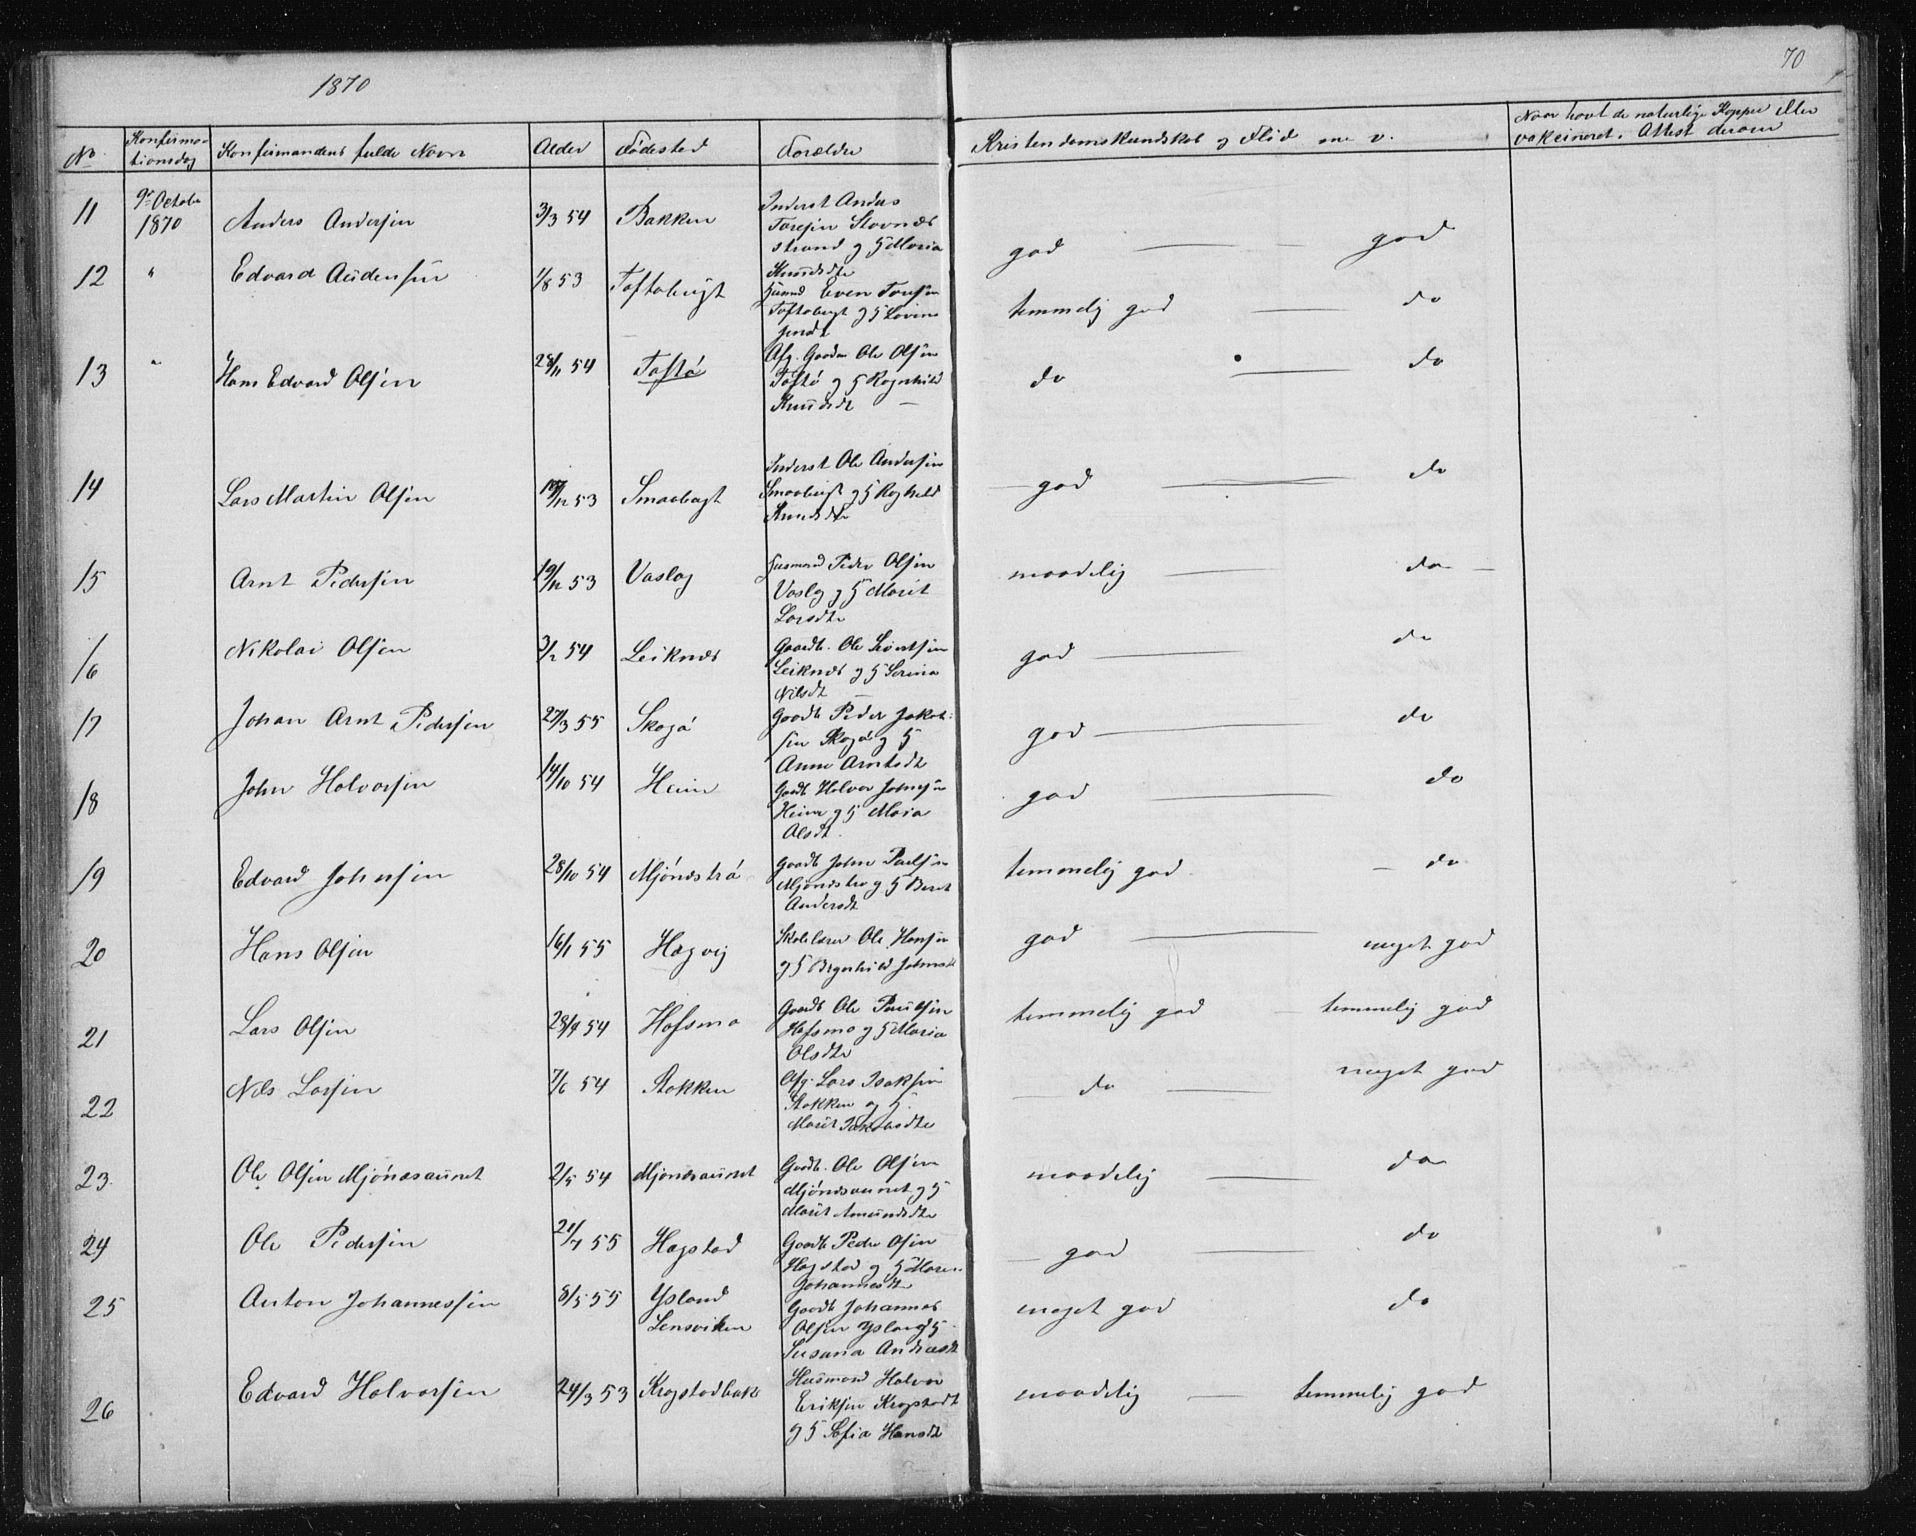 1870
70
No
Konfirmationsdag
Konfirmandens fulde Navn
Alder
Fødested
Forældre
Kristendomskundskab og Flid m. v.
Naar havt de naturlige Kopper eller
vakcineret. Attest derom
11 9de Octobr 1870 Anders Andersen 3/3 54 Bakken
Inderst Anders
Toresen Stovnes
strand og H Maria
Knudsdtr
god — god
12 " Edvard 1/8 53 Toftebugt
Husmd Even Toresen
Toftebugt og H Lovise
temmelig god — do
13 " Hans Edvard Olsen 28/11 54 Toftø
Afg. Gaardm Ole Olsen
Toftø og H Ragnhild
Knudsdt —
do — do
14 Lars Martin Olsen /12 53 Smaabugt
Inderst Ole Andersen
Smaabugt og H Raghild
Knudsdtr
god — do
15 Arnt Pedersen 19/12 53 Vaslag
Husmand Peder Olsen
Vaslag og H Marit
Larsdtr
maadelig — do —
16 Nikolai Olsen 3/2 54 Leiknes
Gaardb. Ole Sivertsen
Leiknes og H Serina
Nilsdt
god — do
17 Johan Arnt Pedersen 27/3 55 Skogå
Gaardb Peder Jakob-
sen Skogå og H
Anne Arntsdt
god — do
18 John Halvorsen 14/10 54 Heim
Gaardb Halvor Johnsen
Heim og H Maria
Olsdt.
god — do
19 Edvard Johnsen 28/10 54 Mjønestrø
Gaardb John Paulsen
Mjønestrø og H Beret
Andersdt
temmelig god — do
20 Hans Olsen 16/1 55 Hagvig
Skolelærer Ole Hansen
og H Johnsdt
god — meget god
21 Lars Olsen 28/9 54 Hafsmo
Gaardb Ole Paulsen
Hafsmo og H Maria
Olsdtr
temmelig god — temmelig god
22 Nils Larsen 7/6 54 Stokken
Afg. Lars Isaksen
Stokken og H.
Marit Jakobsdtr
— do — meget god
23 Ole Olsen Mjønesaunet 2/5 54 Mjønesaunet
Gaardb. Ole Olsen
Mjønesaunet og H
Marit Amundsdtr
maadelig — do
24 Ole Pedersen 21/7 55 Hagstad
Gaardb Peder Olsen
Hagstad og H Maren
Johannesdt
— god — do
25 Anton Johannessen 8/5 55 Ysland
Lensviken
Gaardb Johannes
Olsen Ysland og H
Susana Andreasdt
meget god do
26 Edvard Halvorsen 24/3 53 Krogstadbak
Husmand Halvor
Eriksen Krogstadb
og H Sofia Hansdt
maadelig — temmelig god